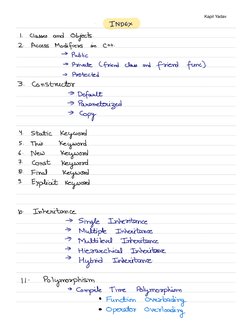 Kapil Yadav
INDEX
1. Classes and Objects
2. Access Modifiers in C++.
→ Public
→ Private (friend class and friend func)
→ Protected
3. Constructor
→ Default
→ Parameterized
→ Copy
4. Static Keyword
5. This Keyword
6. New Keyword
7. Const Keyword
8. Final Keyword
9. Explicit Keyword
10. Inheritance
→ Single Inheritance
→ Multiple Inheritance
→ Multilevel Inheritance
→ Hierarchical Inheritance
→ Hybrid Inheritance
11. Polymorphism
→ Compile Time Polymorphism
• Function Overloading
• Operator Overloading